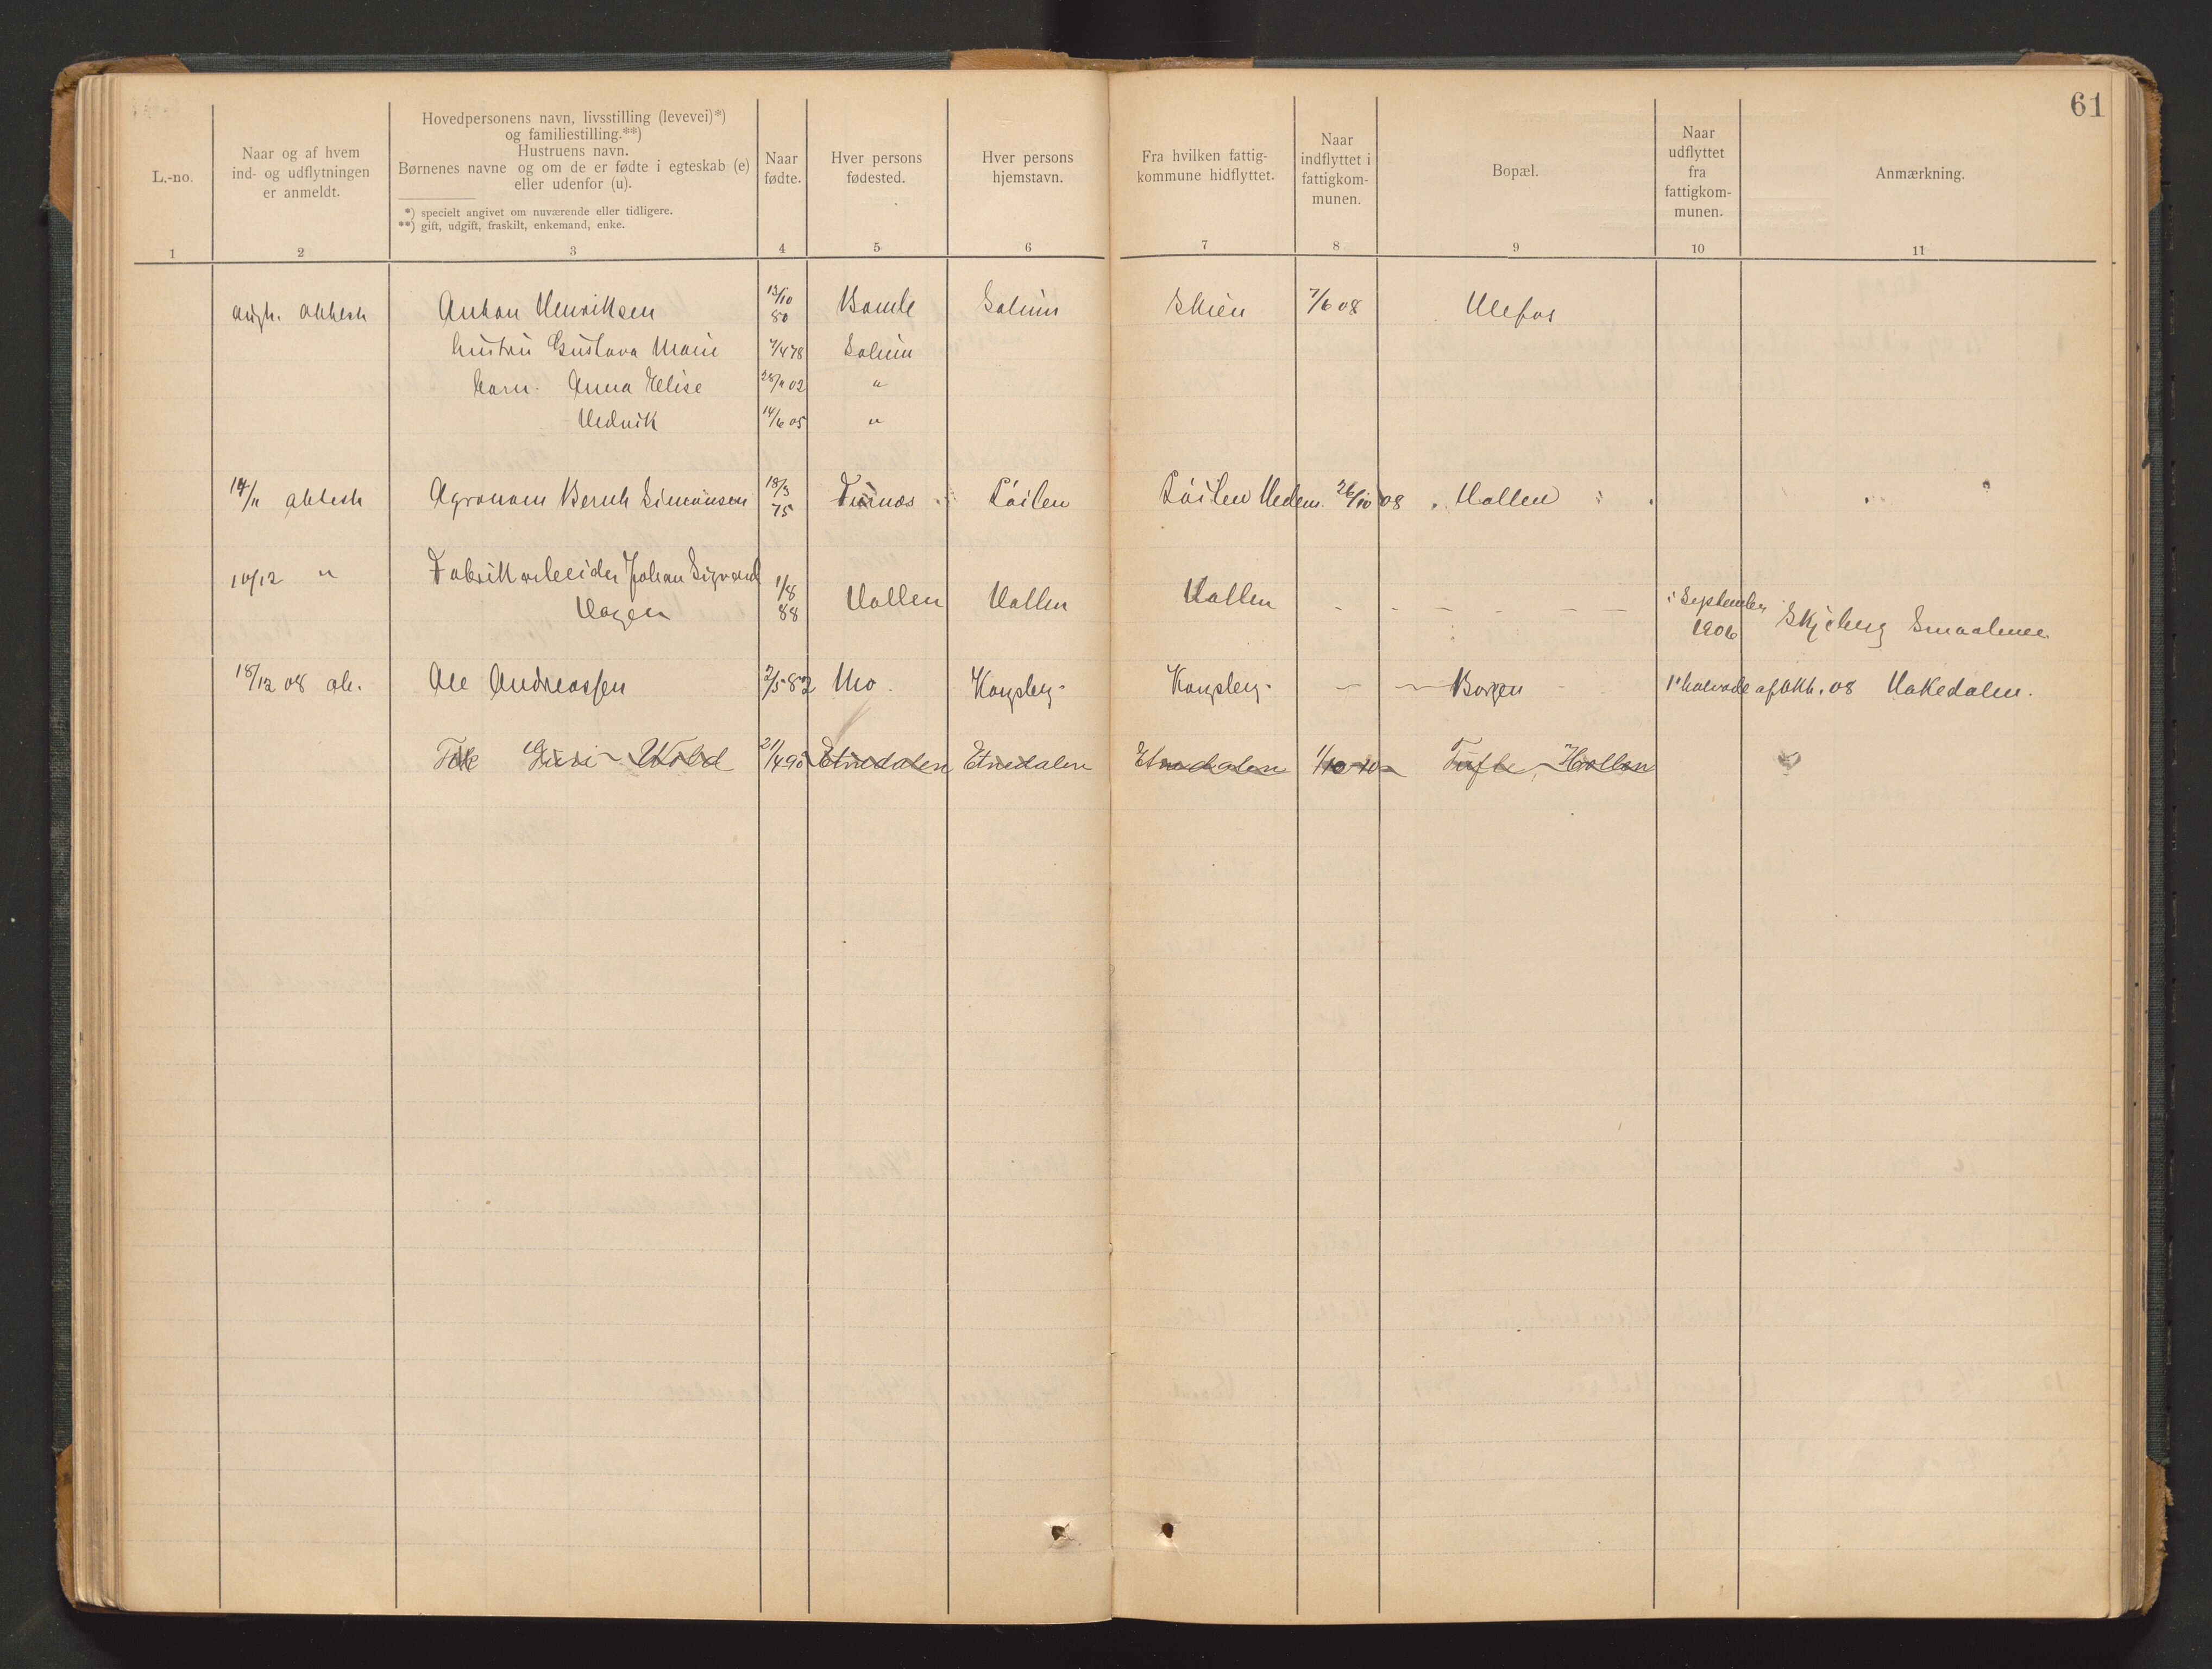 61
L.-no.
Naar og af hvem
ind- og udflytningen
er anmeldt.
Hovedpersonens navn, livsstilling (levevei)*)
og familiestilling.**)
Hustruens navn.
Børnenes navne og om de er fødte i egteskab (e)
eller udenfor (u).
*) specielt angivet om nuværende eller tidligere.
**) gift, udgift, fraskilt, enkemand, enke.
Naar
fødte.
Hver persons
fødested.
Hver persons
hjemstavn.
Fra hvilken fattig-
kommune hidflyttet.
Naar
indflyttet i
fattigkom-
munen.
Bopæl.
Naar
udflyttet
fra
fattigkom-
munen.
Anmærkning.
1 2 3 4 5 6 7 8 9 10 11
Anton Henriksen 13/10 80 Bamle Solum Skien 7/6 08 Ulefos
hustru Gustava Marie 7/4 78 Solum
barn. Anna Elise 28/11 02 "
Hedvik 14/6 05 "
14/11 attest Agronom Bernh Simonsen 18/3 75 Furnæs Löiten Löiten Hedem. 26/10 08 Hollen
10/12 " Fabrikarbeider Johan Sigvard
Hagen 1/8 88 Hollen Hollen Hollen i September
1906 Skjeberg Smaalenene
18/12 08 Ole Andreassen 2/5 82 Mo. Kongsberg Kongsberg Borgen 1' halvdel af Okt. 08 Hakedalen.
Guri 21/4 90 Etnedalen Etnedalen Etnedalen 1/10 10 Tufte, Hollen